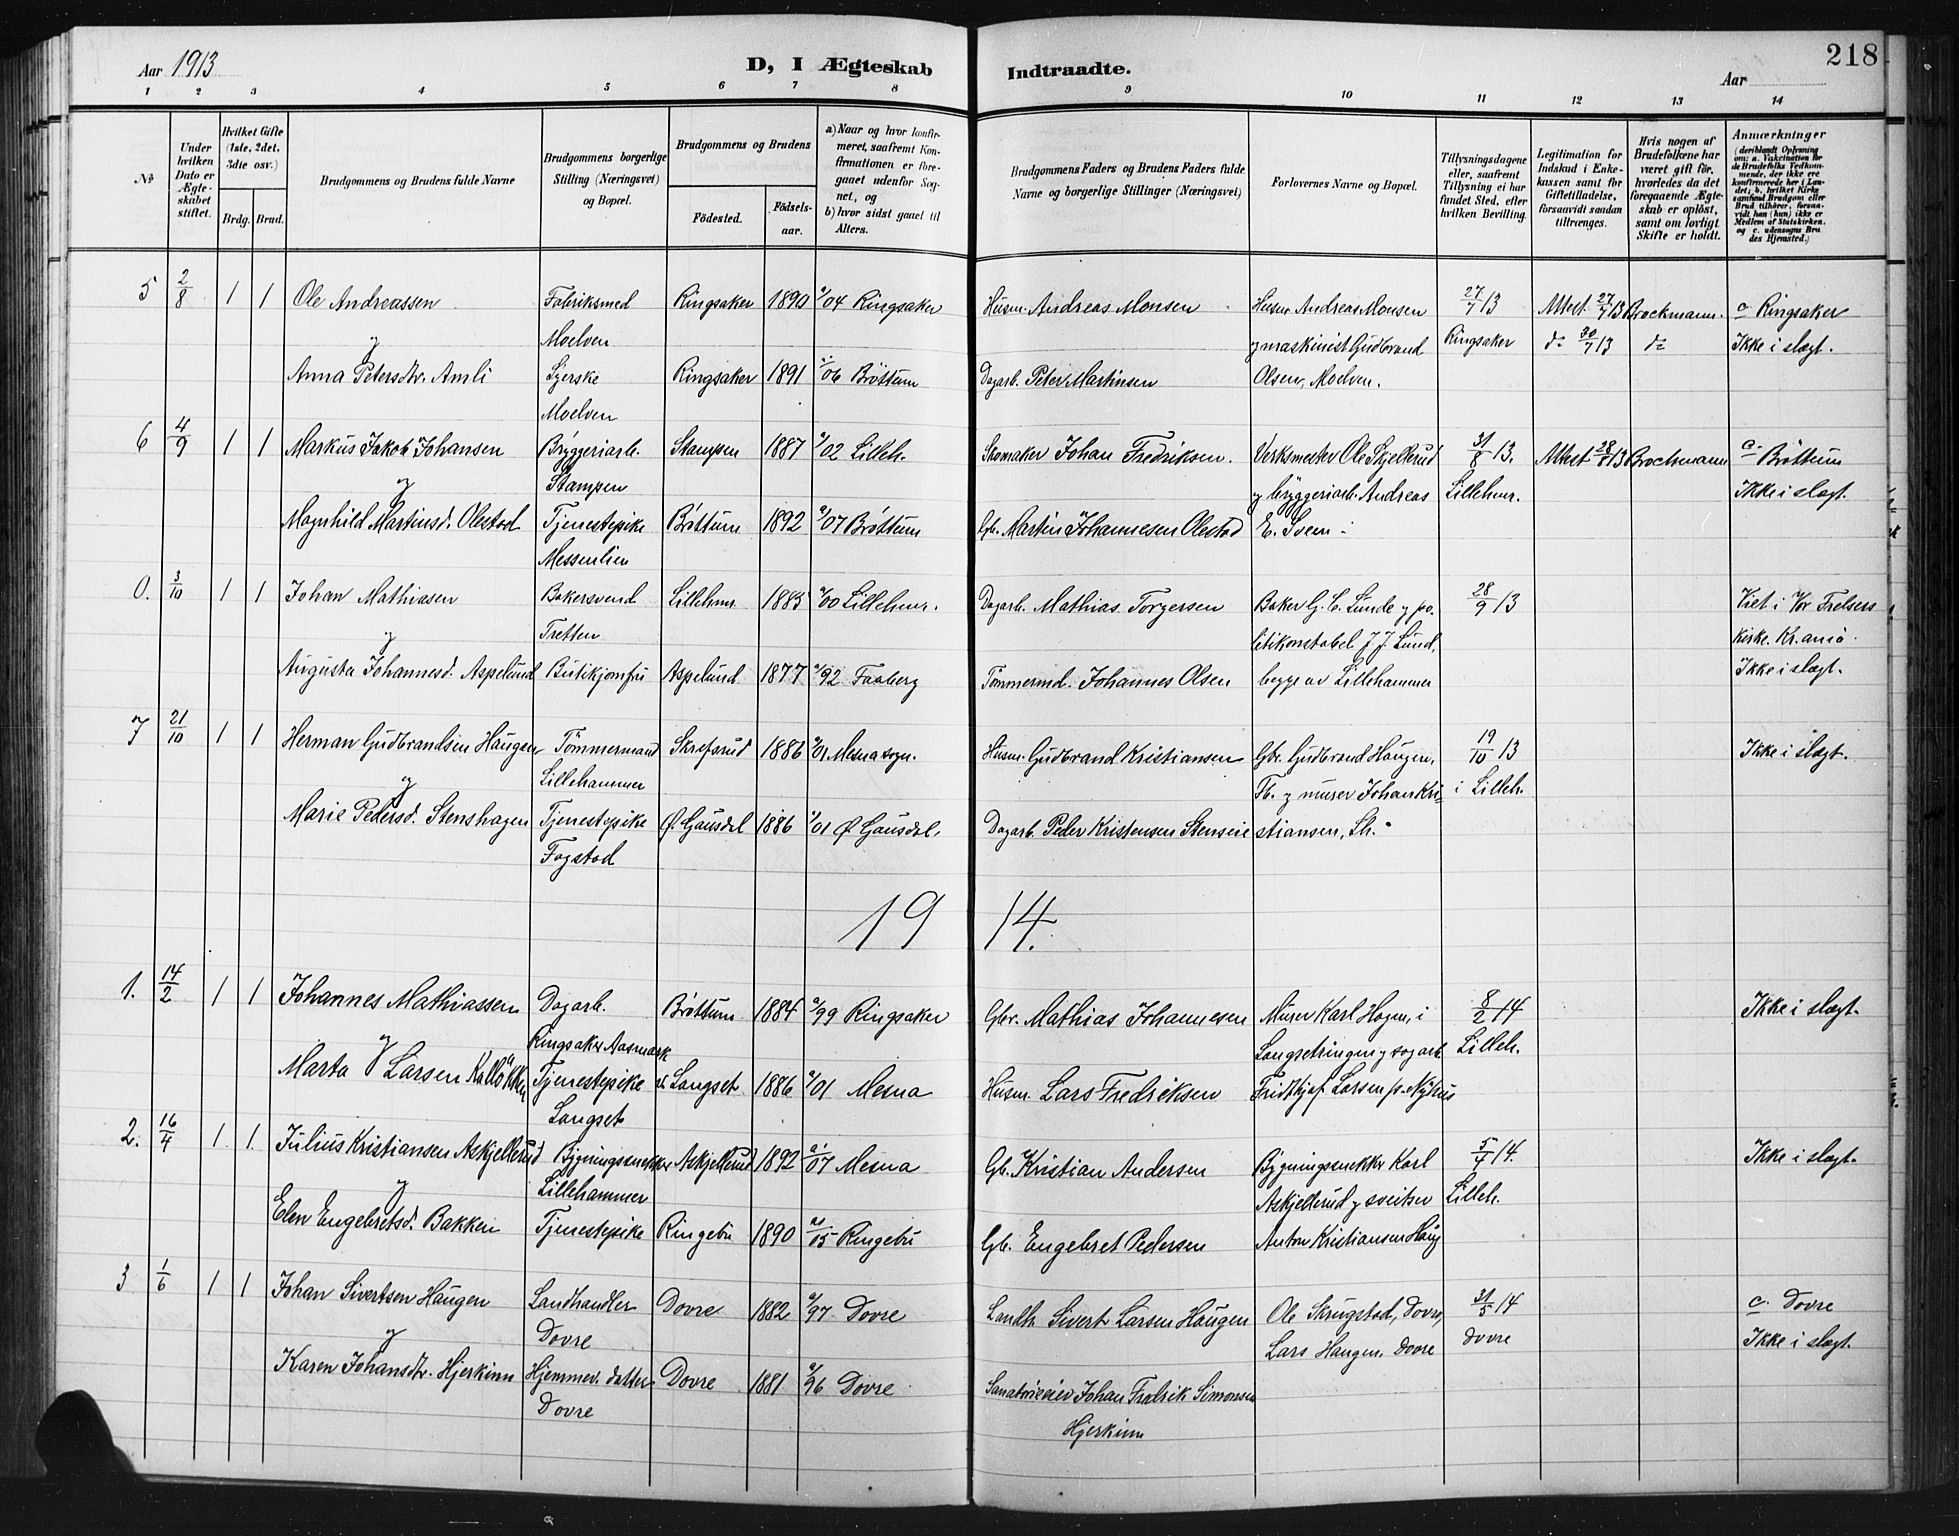 Aar 1913
D, I Ægteskab Indtraadte.
Aar
218
1 2 3 4 5 6 7 8 9 10 11 12 13 14
No
Under hvilken Dato er Ægteskabet stiftet.
Hvilket Gifte (1ste, 2det. 3die osv.)
Brdg. Brud.
Brudgommens og Brudens fulde Navne
Brudgommens borgerlige Stilling (Næringsvei) og Bopæl.
Brudgommens og Brudens
Fødested. Fødselsaar.
a) Naar og hvor konfirmeret, saafremt Konfirmationen er foregaaet udenfor Sognet, og
b) hvor sidst gaaet til Alters.
Brudgommens Faders og Brudens Faders fulde Navne og borgerlige Stillinger (Næringsvei)
Forlovernes Navne og Bopæl.
Tillysningsdagene eller, saafremt Tillysning ei har fundet Sted, efter hvilken Bevilling.
Legitimation for Indskud i Enkekassen samt for Giftetilladelse, forsaavidt saadan tiltrænges.
Hvis nogen af Brudefolkene har været gift før, hvorledes da det foregaaende Ægteskab er opløst, samt om lovligt Skifte er holdt.
Anmærkninger (deriblandt Oplysning om: a. Vakcination for de Brudefolks Vedkommende, der ikke ere konfirmerede her i Landet; b. hvilket Kirkesamfund Brudgom eller Brud tilhører, forsaavidt han (hun) ikke er Medlem af Statskirken. og c. udensogns Brudes Hjemsted.)
5 2/8 1 1 Ole Andreassen Fabriksmed Ringsaker 1890 /04 Ringsaker Husm. Andreas Monsen Husm. Andreas Monsen 27/7 13 Attest 27/7 13 Brockmann. c Ringsaker
y Moelven y maskinist Gudbrand Ringsaker do 30/7 13 do Ikke i slegt.
Anna Petersdtr. Amli Syerske Ringsaker 1891 /06 Brøttum Dagarb. Peter Martinsen Olsen, Moelven.
Moelven
6 4/9 1 1 Markus Jakob Johansen Bryggeriarb. Stampen 1887 /02 Lilleh. Skomaker Johan Fredriksen. Verksmester Ole Skjellerud 31/8 13. Attest 28/8 13 Brockmann c Brøttum
y Stampen y bryggeriarb. Andreas Lillehmr. Ikke i slegt.
Magnhild Martinsd. Olestad Tjenestepike Brøttum 1892 /07 Brøttum Gb. Martin Johannesen Olestad E. Sveen
Messenlien
0. 3/10 1 1 Johan Mathiasen Bakersvend Lillehmr. 1885 /00 Lillehmr. Dagarb. Mathias Torgersen Baker G. C. Lunde y po- 28/9 13 Viet i Vor Frelsers
y Tretten litikonstabel J. J. Lund, kirke. Kr.ania.
Augusta Johannesd. Aspelund Butikjomfru Aspelund 1877 /92 Faaberg Tømmermd. Johannes Olsen begge av Lillehammer Ikke i slegt.
7 21/10 1 1 Herman Gudbrandsen Haugen Tømmermand Skrefsrud 1886 /01 Mesna sogn. Husm. Gudbrand Kristiansen Gbr. Gudbrand Haugen, 19/10 13 Ikke i slegt.
y Lillehammer Fb. y murer Johan Kri- i Lilleh.
Marie Pedersd. Stenshagen Tjenestepike Ø. Gausdal 1886 /01 Ø. Gausdal. Dagarb. Peder Kristensen Stenseie stiansen, Lh.
Fogstad
1914.
1. 14/2 1 1 Johannes Mathiassen Dagarb. Brøttum 1884 /99 Ringsaker Gbr. Mathias Johannesen Murer Karl Hagen, i 8/2 14 Ikke i slegt.
y Ringsaker Aasmark Langsetringen y sagarb. Lilleh.
Marta Larsen Kalløkken Tjenestepike Langset 1886 /01 Mesna Husm. Lars Fredriksen Fridthjof Larsen p. Nyhus
Langset
2. 16/4 1 1. Julius Kristiansen Askjellerud Bygningssnekker Askjellerud 1892 /07 Mesna Gb. Kristian Andersen Bygningssnekker Karl 5/4 14. Ikke i slegt.
y Lillehammer Askjellerud y sveitser Lilleh.
Elen Engebretsd. Bakken Tjenestepike Ringebu 1890 /05 Ringebu Gb. Engebret Pedersen Anton Kristiansen Haug
3 1/6 1 1 Johan Sivertsen Haugen Landhandler Dovre 1882 /97 Dovre Landh. Sivert Larsen Haugen Ole Skrugstad, Dovre, 31/5 14 c. Dovre
y Dovre Lars Haugen, Dovre Dovre Ikke i slegt.
Karen Johansdtr. Hjerkinn Hjemmev. datter Dovre 1881 /96 Dovre Sanatorieeier Johan Fredrik Simonsen
Dovre Hjerkinn